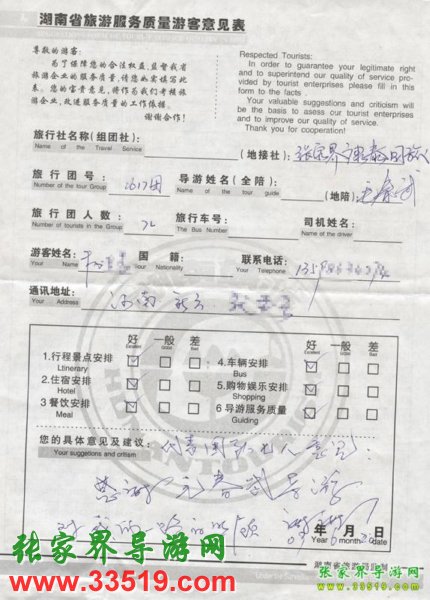 湖南省旅游服务质量游客意见表
尊敬的游客:
为了保障您的合法权益,监督我省
旅游企业的服务质量,请您如实填写此
表。您的宝贵意见,将作为我们考核旅
游企业,改进服务质量的工作依据。
谢谢合作!
Respected Tourists:
In order to guarantee your legitimate right
and to superintend our quality of service pro-
vided by tourist enterprises please fill in this
form to the facts
Your valuable suggestions and criticism will
be the basis to assess our tourist enterprises
and to improve our quality of service.
Thank you for cooperation!
旅行社名称(组团社): (地接社): 张家界
Name of the Travel Service
旅行团号: 1617团 导游姓名(全陪): (地陪)
Number of the tour Group Name of the tour guide
旅行团人数: 旅行车号: 司机姓名:
Number of tourists in the Group The Bus Number Name of the driver
游客姓名: 国籍: 联系电话: 135
Your Name Your Nationality Your Telephone
通讯地址: 河南
Your Address
好 一般 差 好 一般 差
Excellent Good Bad Excellent Good Bad
1.行程景点安排 4.车辆安排
Ltinerary Bus
2.住宿安排 5.购物娱乐安排
Hotel Shopping
3 餐饮安排 6 导游服务质量
Meal Guiding
您的具体意见及建议: 代表团队 人意见:
Your suggestions and critism
感谢 导游
对我们 谢谢
年 月 日
Year 6 month date
湖南省旅游局监制
张家界导游网
www.33519.com
张家界导游网
www.33519.com